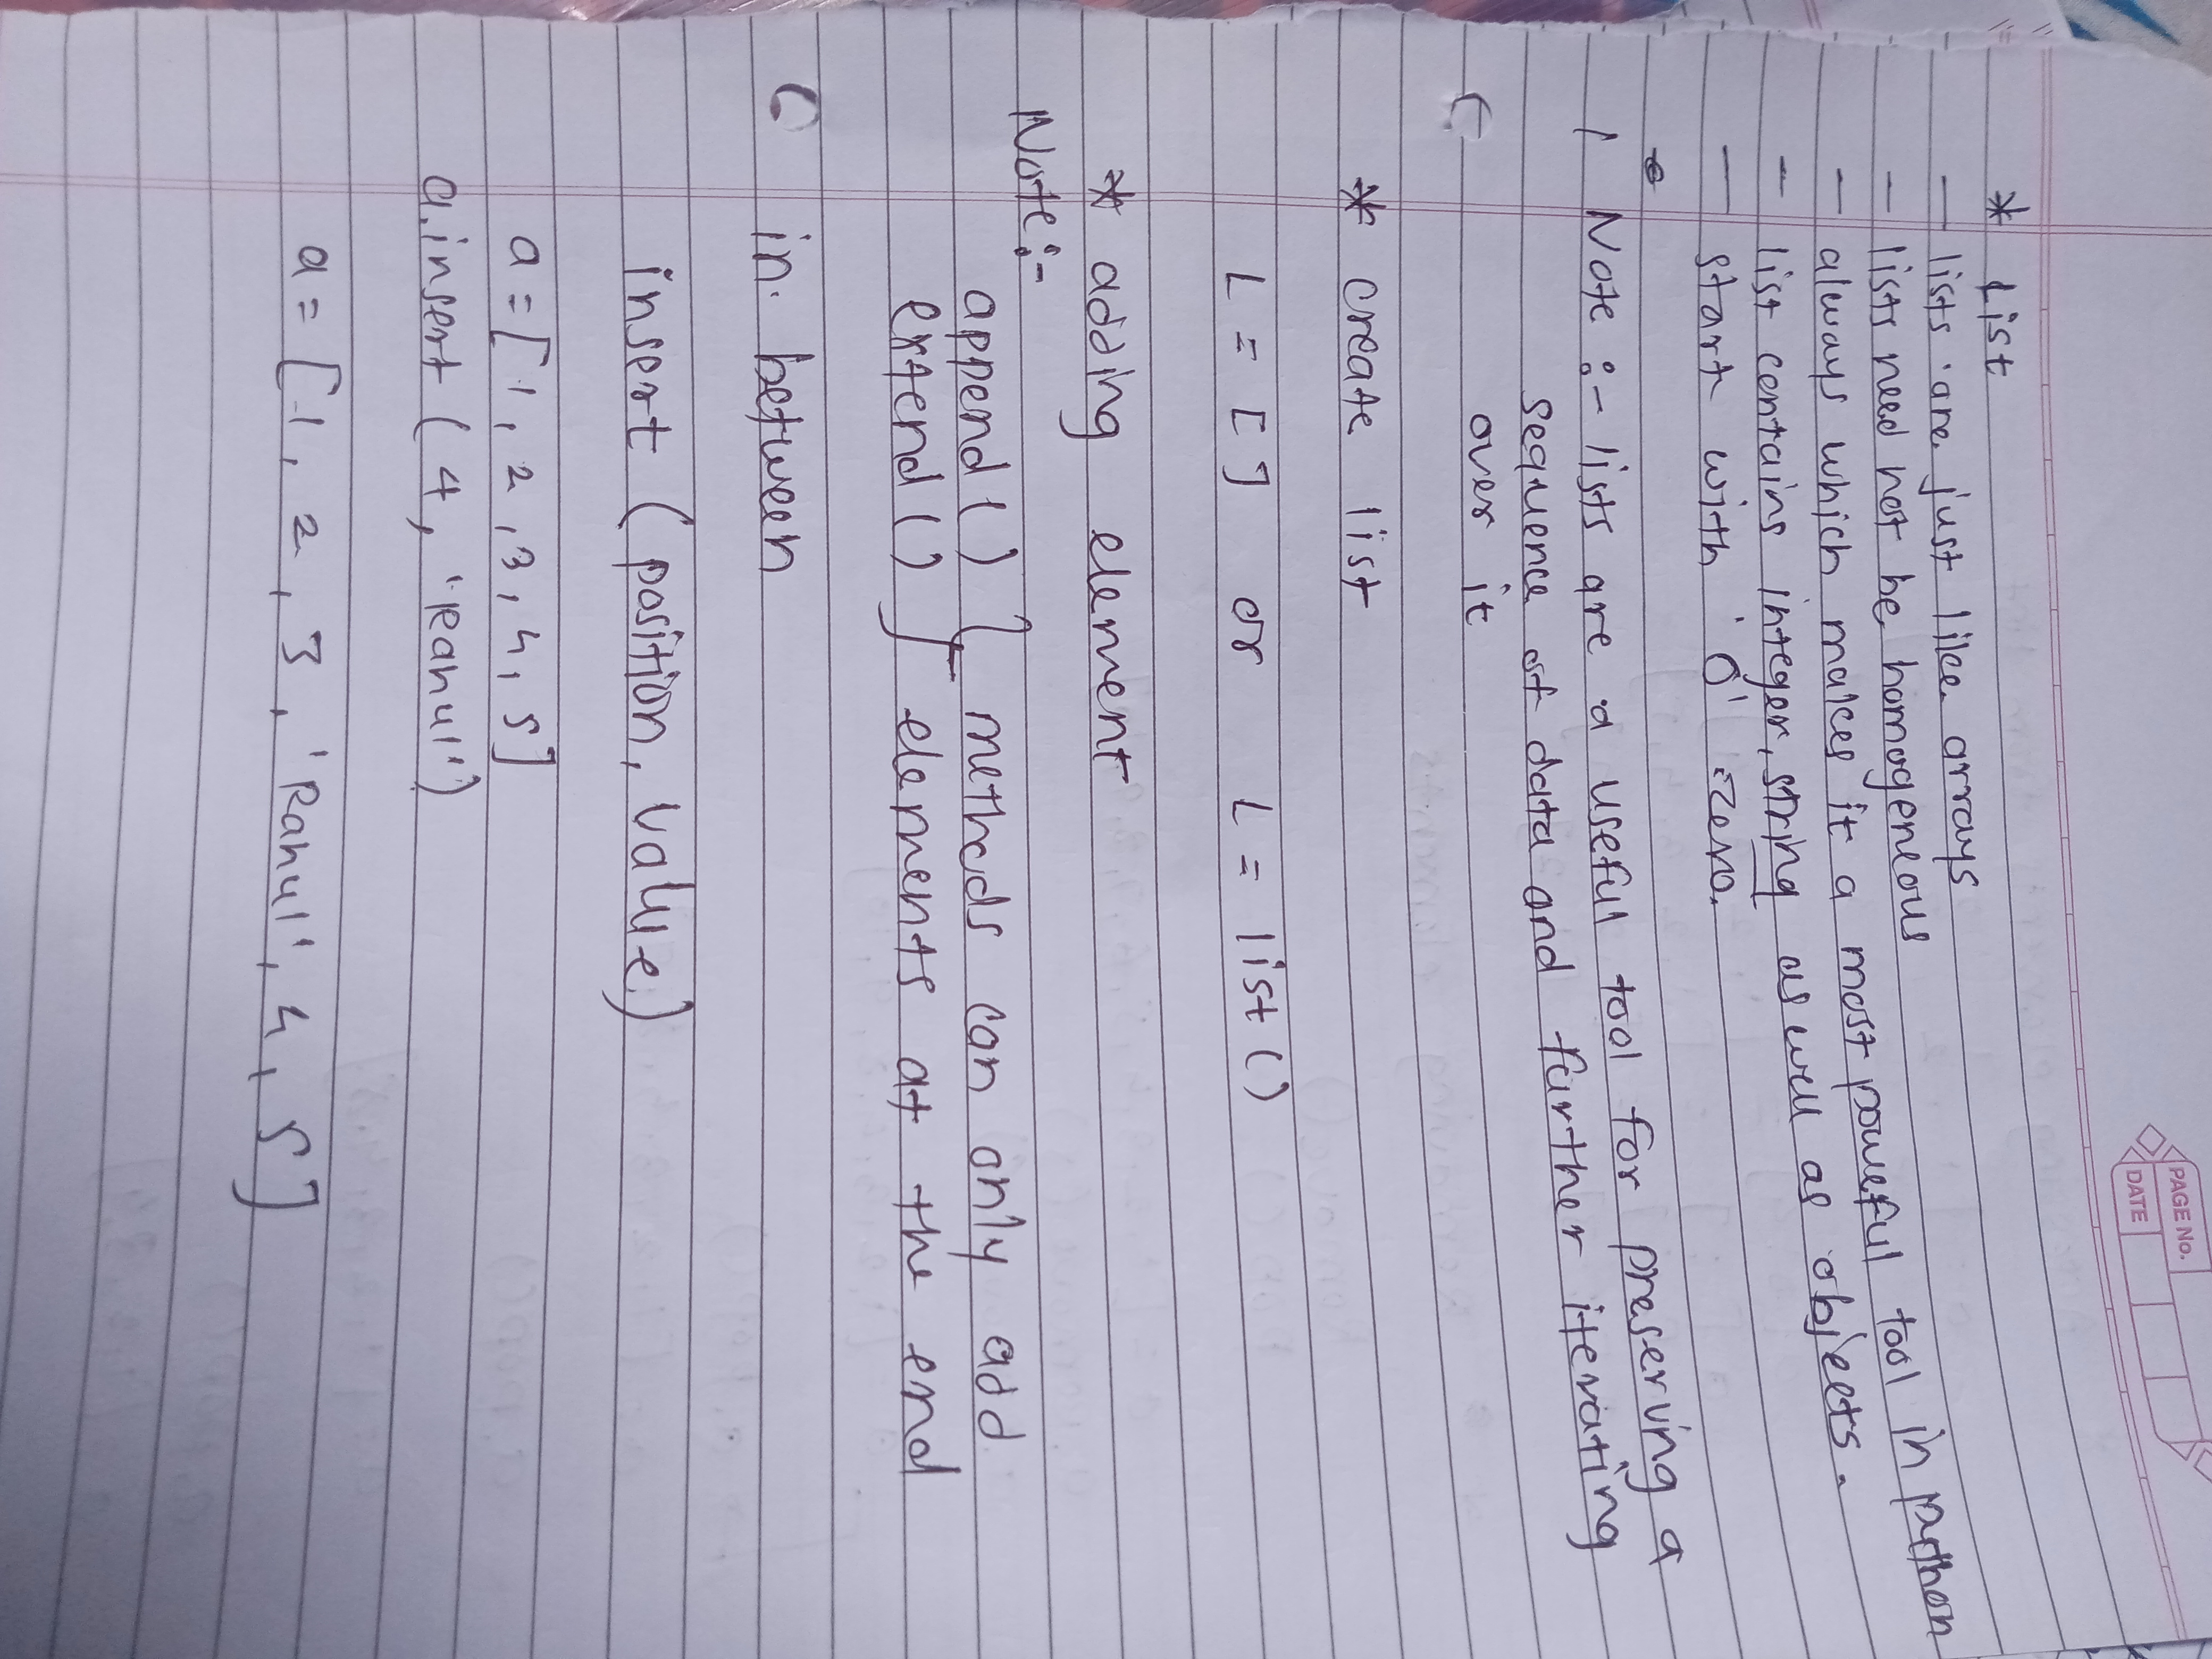 PAGE No.
DATE
* List
— lists are just like arrays
— lists need not be homogeneous
— always which makes it a most poweful tool in python
— list contains integer, string as well as objects.
— start with '0' zero.
Note :- lists are a useful tool for preserving a
sequence of data and further iterating
over it
* create list
L = [ ] or L = list ( )
* adding element
Note :-
append ( ) } methods can only add
extend ( ) } elements at the end
in between
insert ( position, value )
a = [ 1, 2, 3, 4, 5 ]
a.insert ( 4, "Rahul" )
a = [ 1, 2, 3, 'Rahul', 4, 5 ]